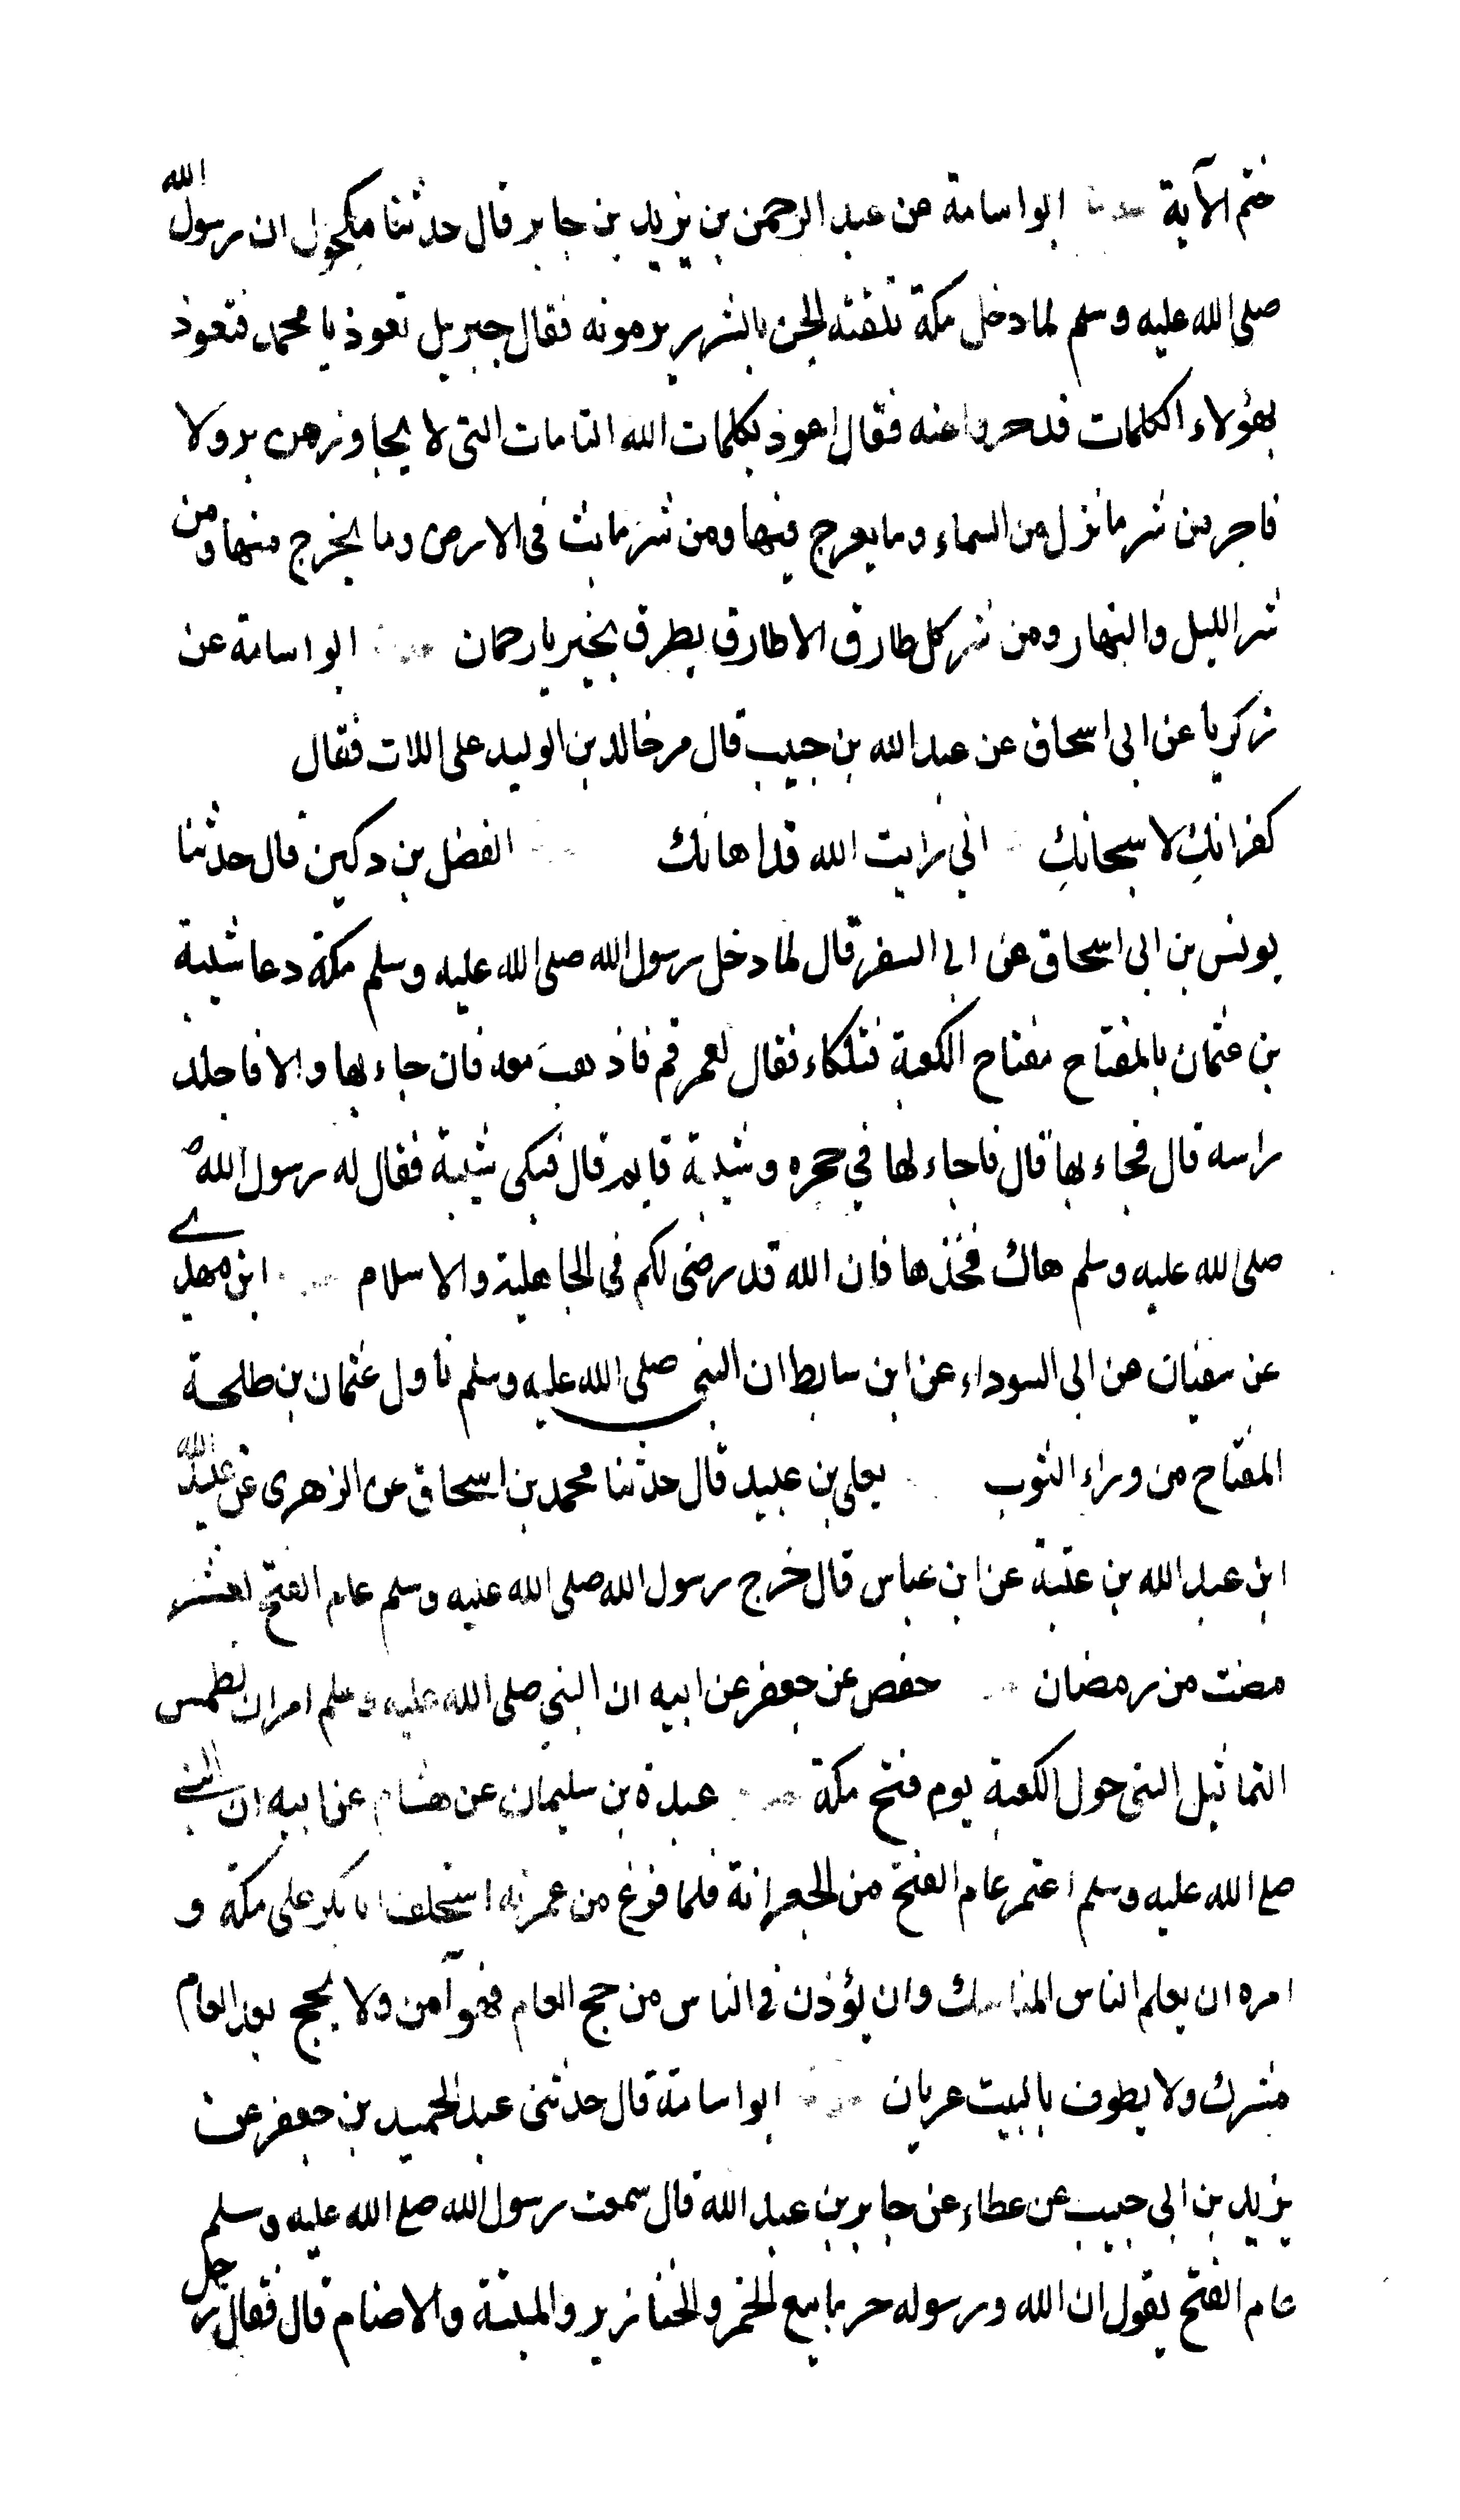 ختم الآية حدثنا ابو اسامة عن عبد الرحمن بن يزيد بن جابر قال حدثنا مكحول ان رسول الله
صلى الله عليه وسلم لما دخل مكة تلقته الجن بالشرر يرمونه فقال جبريل تعوذ يا محمد فتعوذ
بهؤلاء الكلمات فدحروا عنه فقال اعوذ بكلمات الله التامات التى لا يجاوزهن بر ولا
فاجر من شر ما نزل من السماء وما يعرج فيها ومن شر ما بث فى الارض وما يخرج منها ومن
شر الليل والنهار ومن شر كل طارق الا طارق يطرق بخير يا رحمان حدثنا ابو اسامة عن
زكريا عن ابى اسحاق عن عبد الله بن حبيب قال مر خالد بن الوليد على اللات فقال
كفرانكِ لا سبحانكِ انى رايت الله قد اهانك الفضل بن دكين قال حدثنا
يونس بن ابى اسحاق عن ابى السفر قال لما دخل رسول الله صلى الله عليه وسلم مكة دعا شيبة
بن عثمان بالمفتاح مفتاح الكعبة فتلكاء فقال لعمر قم فاذهب معه فان جاء بها والا فاجلد
راسه قال فجاء بها قال فاجاء لها في حجره وشيبة قايم قال فبكى شيبة فقال له رسول الله
صلى الله عليه وسلم هاك فخذها فان الله قد رضى لكم فى الجاهلية والاسلام ابن مهدي
عن سفيان عن ابى السوداء عن ابن سابط ان النبى صلى الله عليه وسلم ناول عثمان بن طلحة
المفتاح من وراء الثوب يعلى بن عبيد قال حدثنا محمد بن اسحاق عن الزهرى عن عبيد الله
ابن عبد الله بن عتبة عن ابن عباس قال خرج رسول الله صلى الله عليه وسلم عام الفتح لعشر
مضت من رمضان حفص عن جعفر عن ابيه ان النبي صلى الله عليه وسلم امر ان تطمس
التماثيل التى حول الكعبة يوم فتح مكة عبدة بن سليمان عن هشام عن ابيه ان النبي
صلى الله عليه وسلم اعتمر عام الفتح من الجعرانة فلما فرغ من عمرته استخلف ابا بكر على مكة و
امره ان يعلم الناس المناسك وان يؤذن فى الناس من حج العام فهو آمن ولا يحج بعد العام
مشرك ولا يطوف بالبيت عريان ابو اسامة قال حدثنى عبد الحميد بن جعفر عن
يزيد بن ابى حبيب عن عطاء عن جابر بن عبد الله قال سمعت رسول الله صلى الله عليه وسلم
عام الفتح يقول ان الله ورسوله حرما بيع الخمر والخنازير والميتة والاصنام قال فقال رجل